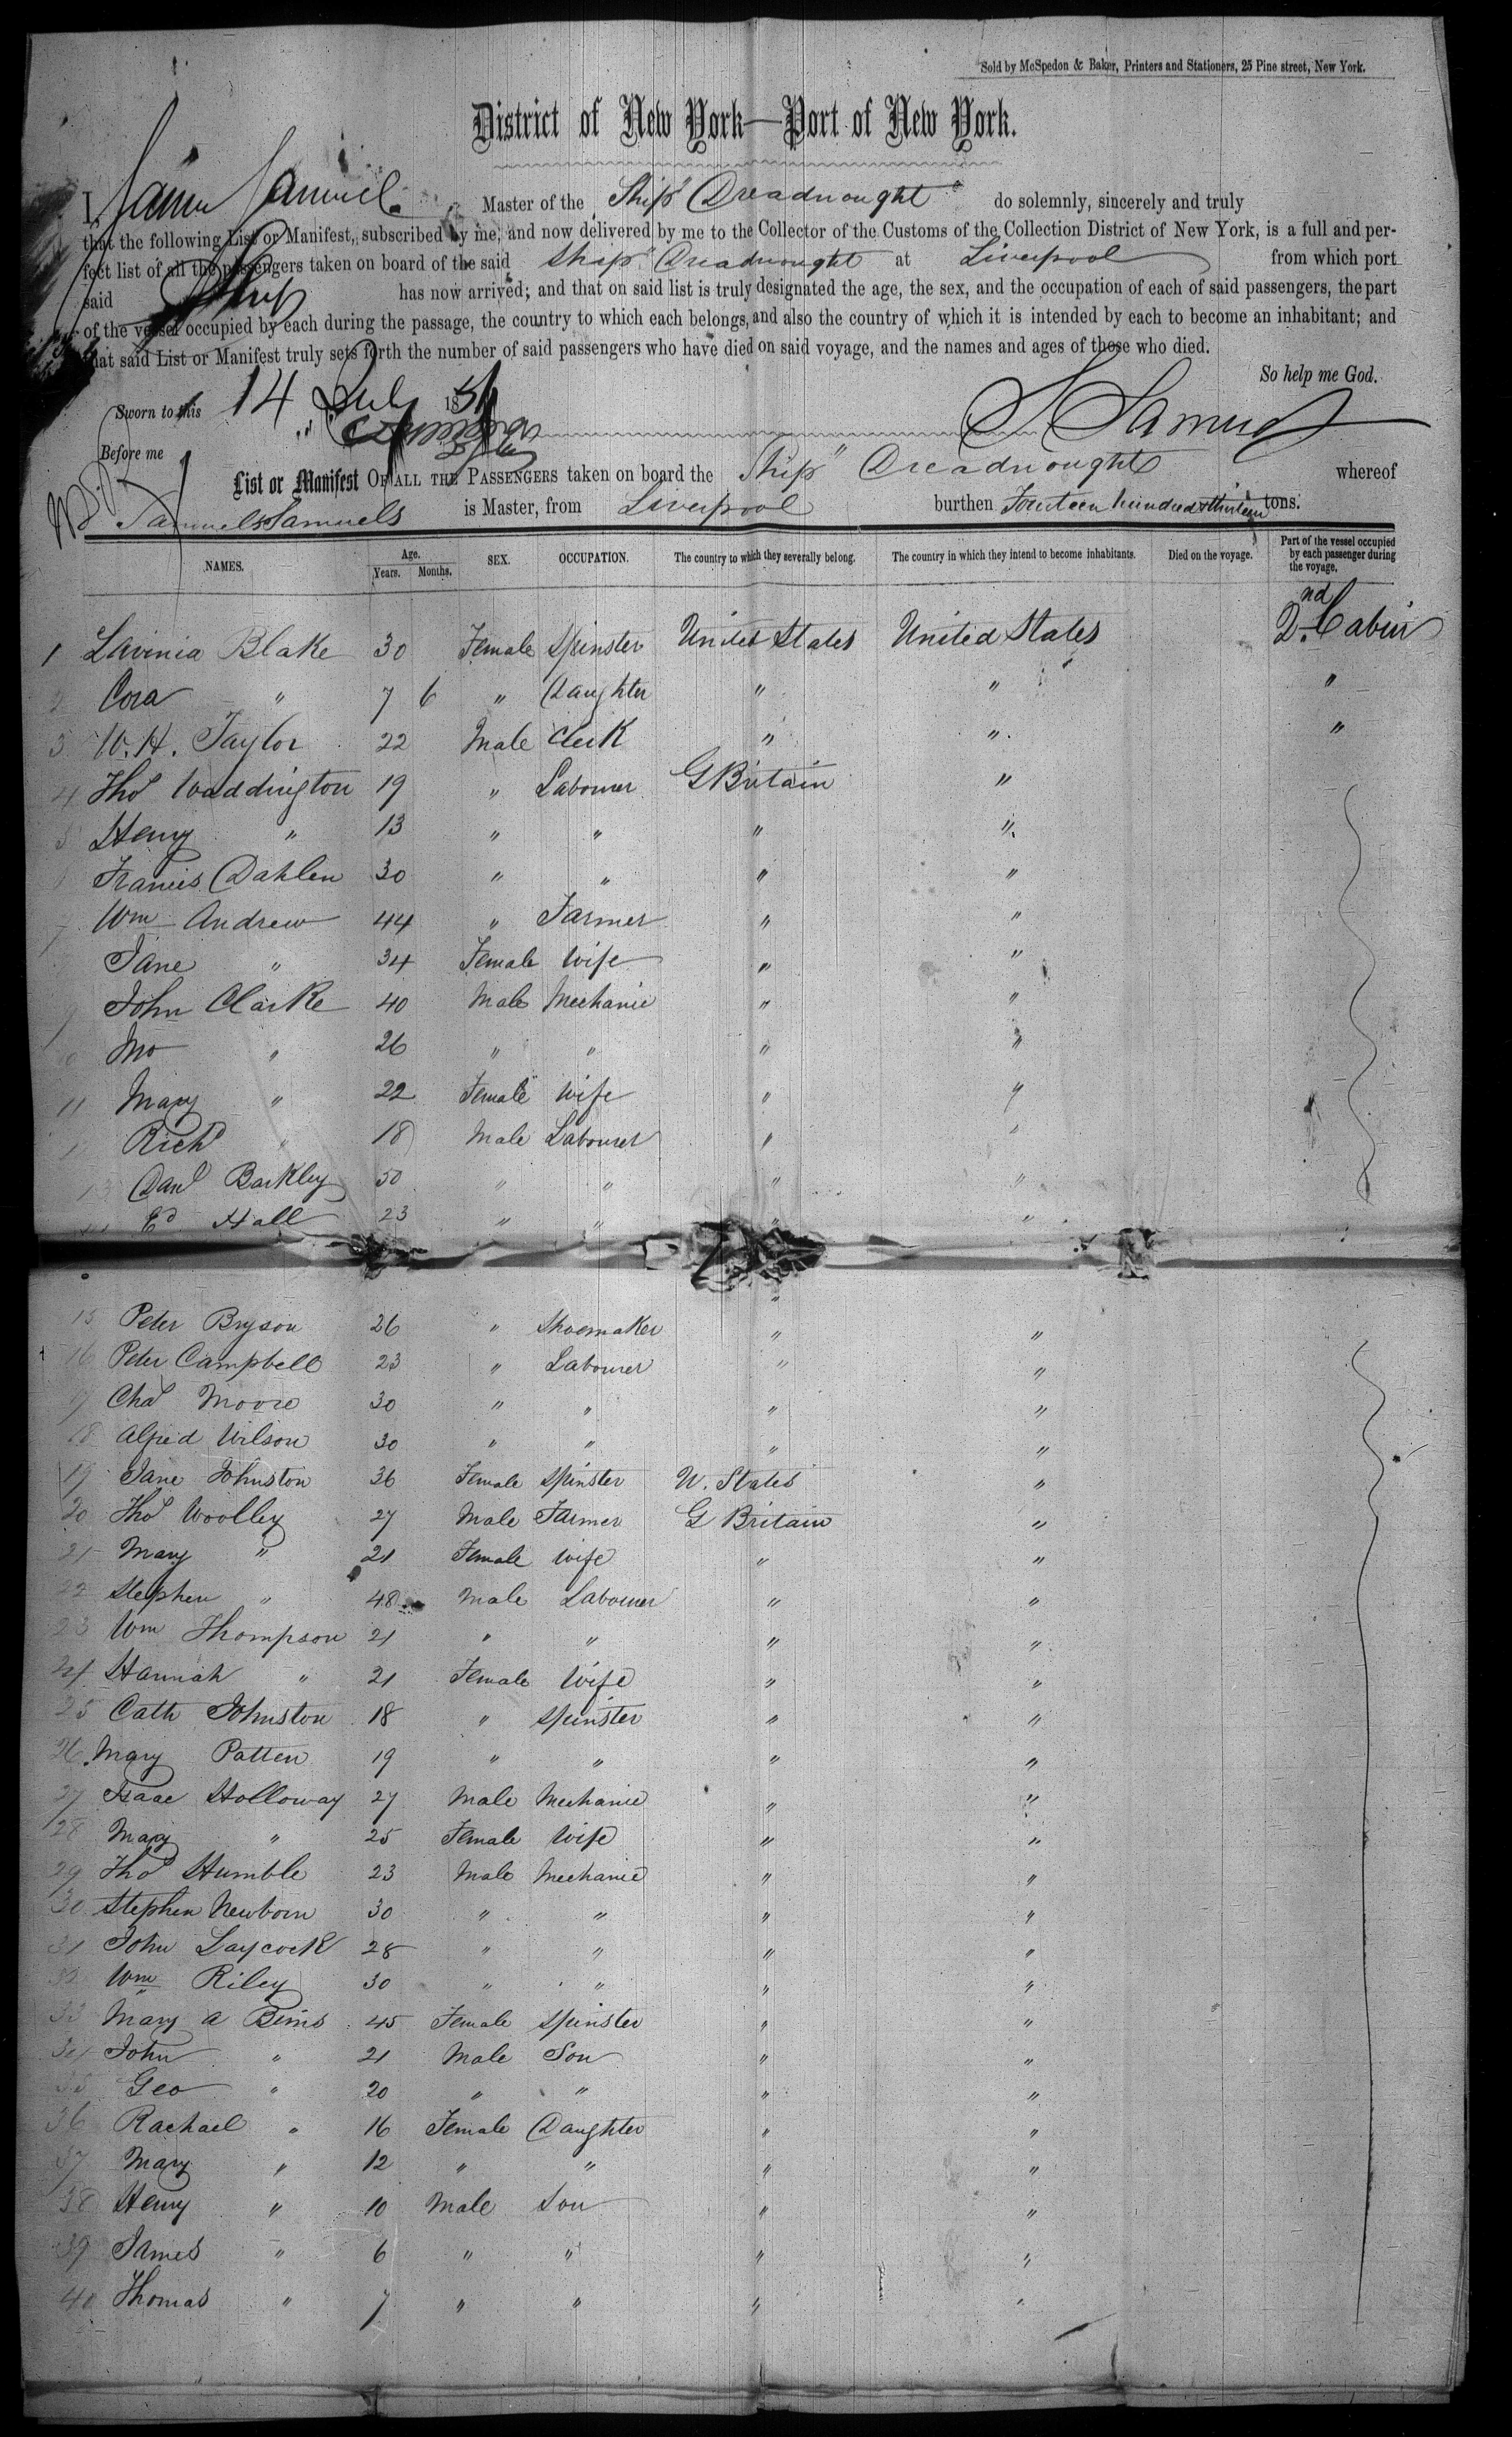 Sold by McSpedon & Baker, Printers and Stationers, 25 Pine street, New York.
District of New York—Port of New York.
I, Samuel Master of the Ship "Dreadnought" do solemnly, sincerely and truly
that the following List or Manifest, subscribed by me, and now delivered by me to the Collector of the Customs of the Collection District of New York, is a full and per-
fect list of all the passengers taken on board of the said Ship "Dreadnought at Liverpool from which port
said Ship has now arrived; and that on said list is truly designated the age, the sex, and the occupation of each of said passengers, the part
of the vessel occupied by each during the passage, the country to which each belongs, and also the country of which it is intended by each to become an inhabitant; and
that said List or Manifest truly sets forth the number of said passengers who have died on said voyage, and the names and ages of those who died.
So help me God.
Sworn to this 14 July 1856
S Samuels
Before me
List or Manifest OF ALL THE PASSENGERS taken on board the Ship "Dreadnought whereof
Samuels Samuels is Master, from Liverpool burthen Fourteen hundred & thirteen tons.
NAMES. Age. Years. Months. SEX. OCCUPATION. The country to which they severally belong. The country in which they intend to become inhabitants. Died on the voyage. Part of the vessel occupied by each passenger during the voyage.
1 Lavinia Blake 30 Female Spinster United States United States 2nd Cabin
2 Cora " 7 6 " Daughter " " "
3 W. H. Taylor 22 Male Clerk " " "
4 Thos Waddington 19 " Labourer G Britain "
5 Henry " 13 " " " "
Francis Dahlen 30 " " " "
7 Wm Andrew 44 " Farmer " "
Jane " 34 Female Wife " "
9 John Clarke 40 Male Mechanic " "
Jno " 26 " " " "
11 Mary " 22 Female Wife " "
Richd " 18 Male Labourer " "
13 Danl Barkley 50 " " " "
Ed Hall 23 " " " "
15 Peter Bryson 26 " Shoemaker " "
16 Peter Campbell 23 " Labourer " "
17 Chas Moore 30 " " " "
18 Alfred Wilson 30 " " " "
19 Jane Johnston 36 Female Spinster U. States "
20 Thos Woolley 27 Male Farmer G Britain "
21 Mary " 21 Female Wife " "
22 Stephen " 48 Male Labourer " "
23 Wm Thompson 21 " " " "
24 Hannah " 21 Female Wife " "
25 Cath Johnston 18 " Spinster " "
26 Mary Patten 19 " " " "
27 Isaac Holloway 27 Male Mechanic " "
28 Mary " 25 Female Wife " "
29 Thos Humble 23 Male Mechanic " "
30 Stephen Newborn 30 " " " "
31 John Laycock 28 " " " "
32 Wm Riley 30 " " " "
33 Mary A Bims 45 Female Spinster " "
34 John " 21 Male Son " "
35 Geo " 20 " " " "
36 Rachael " 16 Female Daughter " "
37 Mary " 12 " " " "
38 Henry " 10 Male Son " "
39 James " 6 " " " "
40 Thomas " 7 " " " "